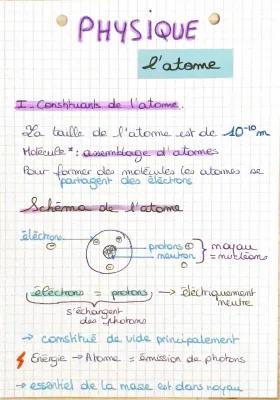 PHYSIQUE
l'atome
I - Constituants de l'atome.
La taille de l'atome est de 10⁻¹⁰ m
Molécule* : assemblage d'atomes
Pour former des molécules les atomes se
partagent des électrons
Schéma de l'atome
électrons
⊖
protons ⊕
neutron
noyau
= nucléons
électrons = protons → électriquement
neutre
s'échangent
des photons
→ constitué de vide principalement
Energie → Atome = émission de photons
→ essentiel de la masse est dans noyau